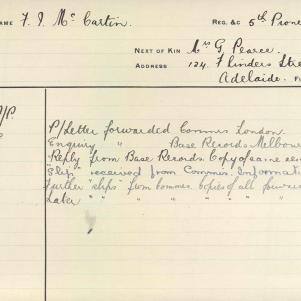 AME F. J. McCartin REG. &C 5th Pione
NEXT OF KIN Mrs G Pearce
ADDRESS 124 Flinders Stre
Adelaide.
P/P.
P/Letter forwarded Commis London.
Enquiry " Base Records Melbou
Reply from Base Records. Copy of same
Slip received from Commis. Informati
Further "slips" from Commis. copies of all forwar
Later " " " " " "